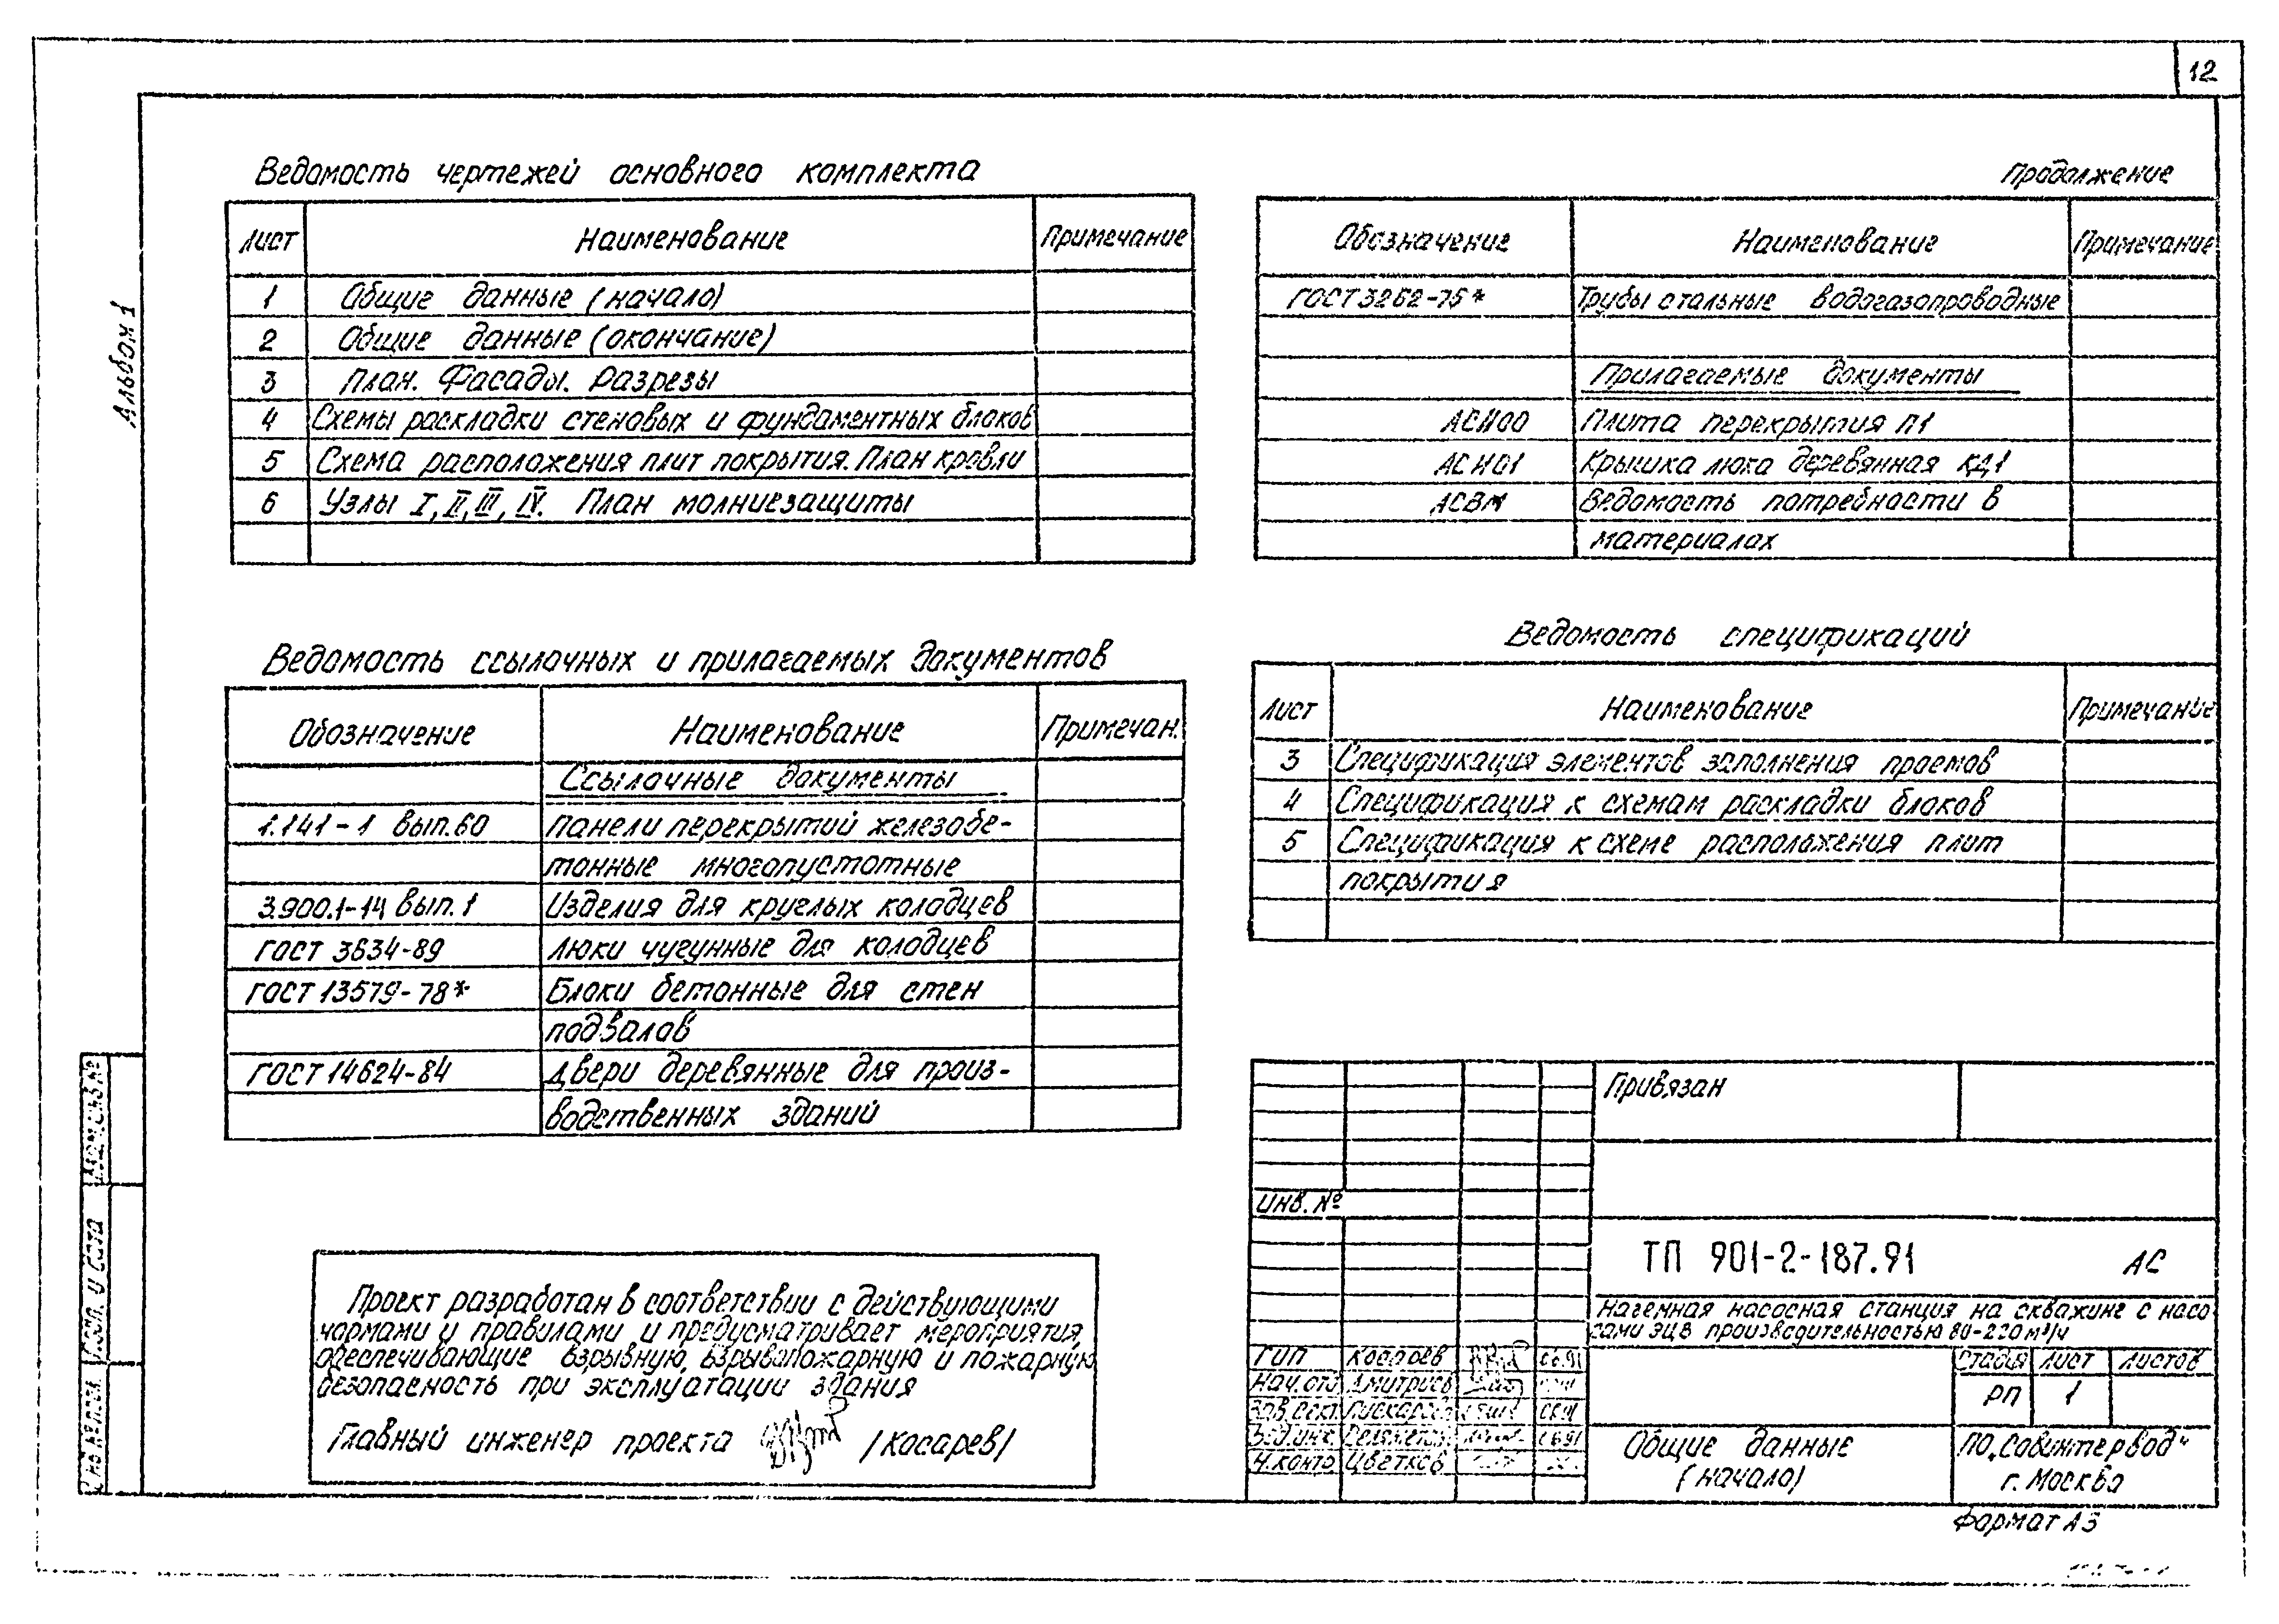 12
Альбом 1
Ведомость чертежей основного комплекта
Лист Наименование Примечание
1 Общие данные (начало)
2 Общие данные (окончание)
3 План. Фасады. Разрезы
4 Схемы раскладки стеновых и фундаментных блоков
5 Схема расположения плит покрытия. План кровли
6 Узлы I, II, III, IV. План молниезащиты
Ведомость ссылочных и прилагаемых документов
Обозначение Наименование Примечан.
Ссылочные документы
1.141-1 вып.60 Панели перекрытий железобе-
тонные многопустотные
3.900.1-14 вып.1 Изделия для круглых колодцев
ГОСТ 3634-89 Люки чугунные для колодцев
ГОСТ 13579-78* Блоки бетонные для стен
подвалов
ГОСТ 14624-84 Двери деревянные для произ-
водственных зданий
Проект разработан в соответствии с действующими
нормами и правилами и предусматривает мероприятия,
обеспечивающие взрывную, взрывопожарную и пожарную
безопасность при эксплуатации здания
Главный инженер проекта /Косарев/
Продолжение
Обозначение Наименование Примечание
ГОСТ 3262-75* Трубы стальные водогазопроводные
Прилагаемые документы
АСИ00 Плита перекрытия П1
АСИ01 Крышка люка деревянная КД1
АСВМ Ведомость потребности в
материалах
Ведомость спецификаций
Лист Наименование Примечание
3 Спецификация элементов заполнения проемов
4 Спецификация к схемам раскладки блоков
5 Спецификация к схеме расположения плит
покрытия
Привязан
Инв. №
ТП 901-2-187.91 АС
Наземная насосная станция на скважине с насо-
сами ЭЦВ производительностью 80-220 м³/ч
ГИП Косарев 06.91
Нач. отд Дмитриев
Зав. сект. 06.91
Вед. инж. 06.91
Н. контр Цветков
Стадия Лист Листов
РП 1
Общие данные
(начало)
ПО „Совинтервод"
г. Москва
Формат А3
Взам. инв. №
Подп. и дата
Инв. № подл.